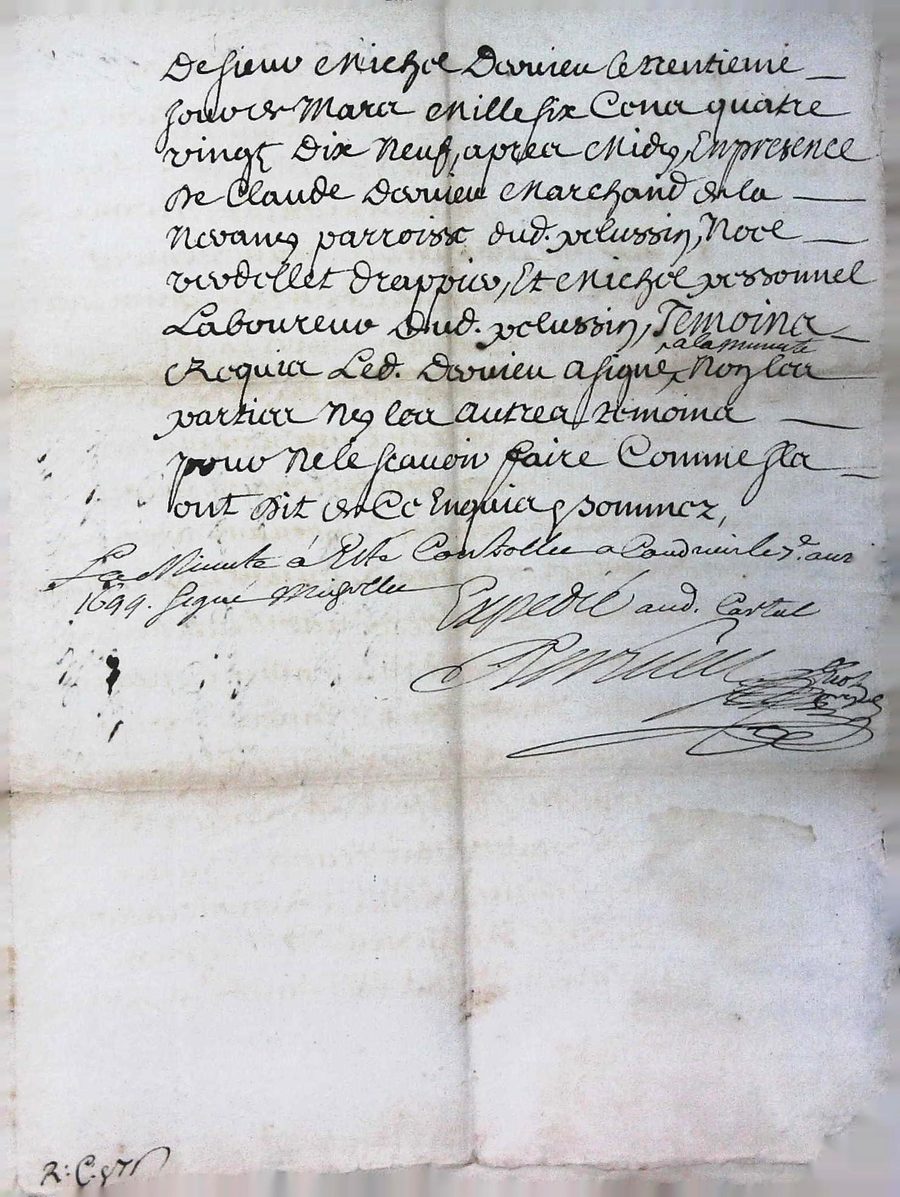 De sieur Michel Dervieu Le trentieme
Jour de Mars Mille six Cens quatre
vingt Dix Neuf, apres Midy, En presence
De Claude Dervieu Marchand de la
parroisse dud. pelussin, Noel
verdellet Drappier, Et Michel pessonnel
Laboureur Dud. pelussin, Temoins
a la Minutte
Requis Led. Dervieu a signé Non les
parties Ny les autres temoins
pour ne le scavoir faire Comme Ils
ont dit de Ce Enquis & sommez,
La Minute á Esté Controllee a Condrieu le 7e. avr
1699. signé
Expedié aud. Cartal
Dervieu
R: C.